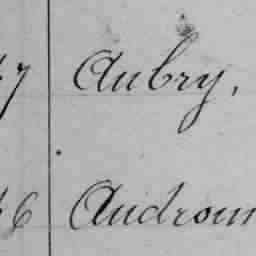 7 Aubry,
6 Androun